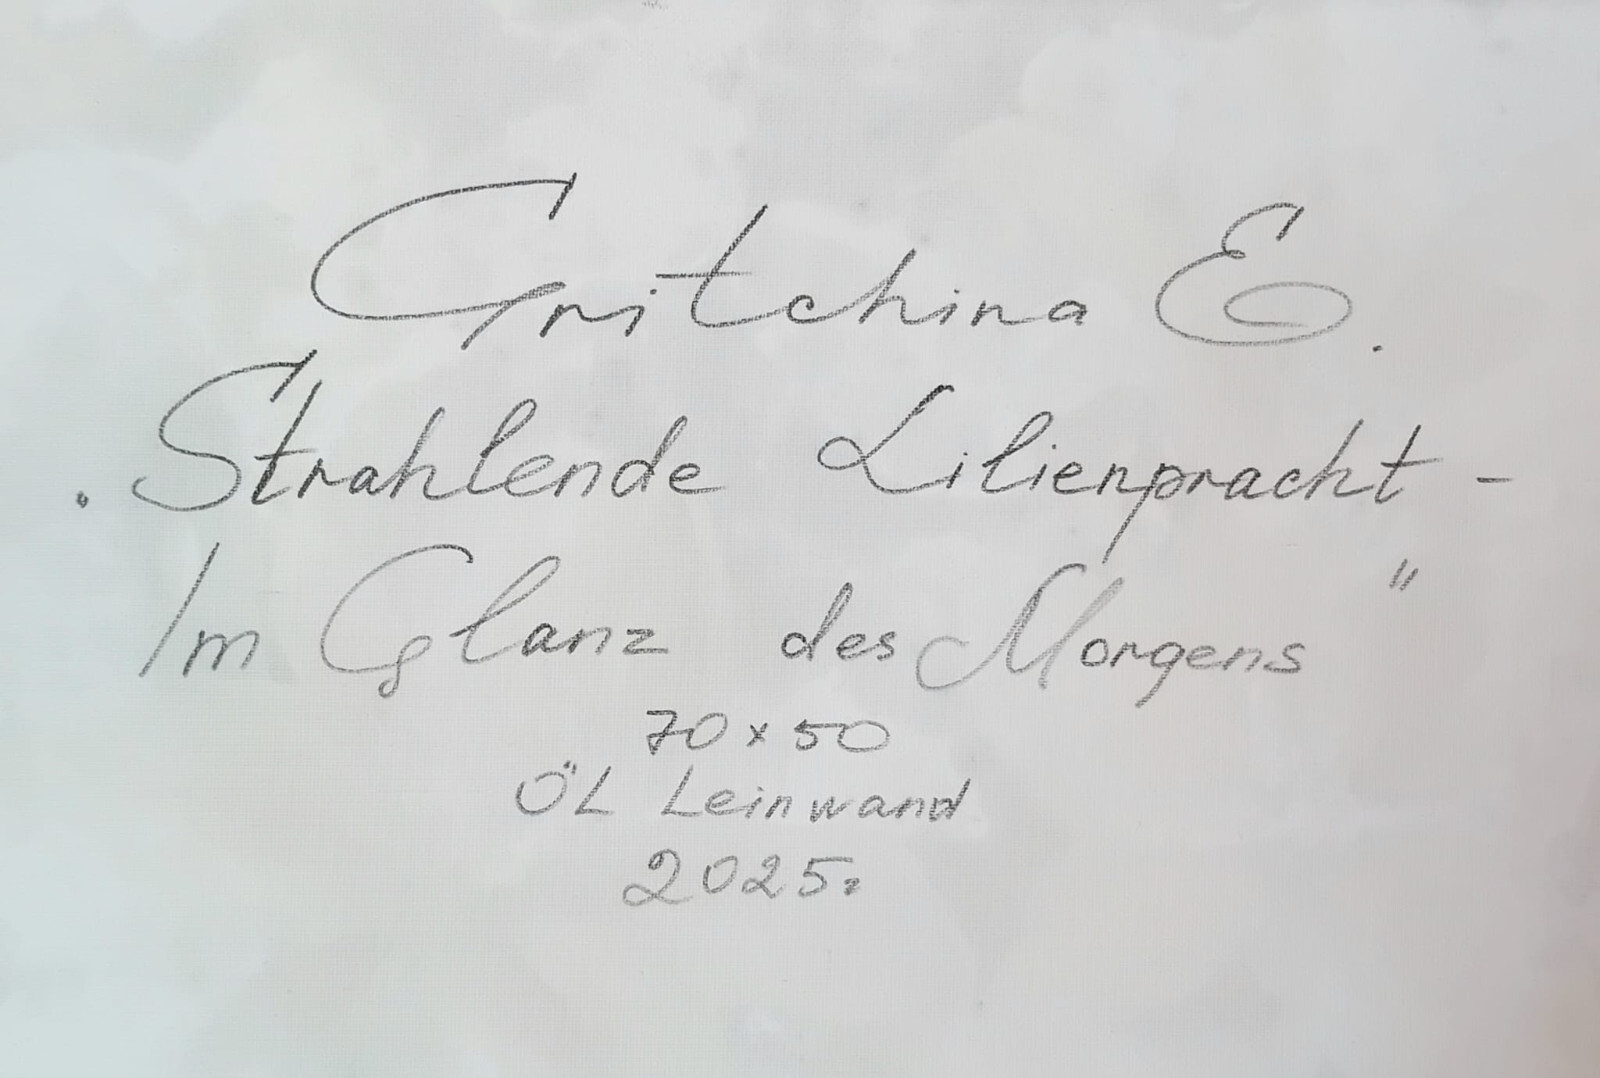 Gritchina E.
„Strahlende Lilienpracht -
Im Glanz des Morgens"
70x50
ÖL Leinwand
2025г